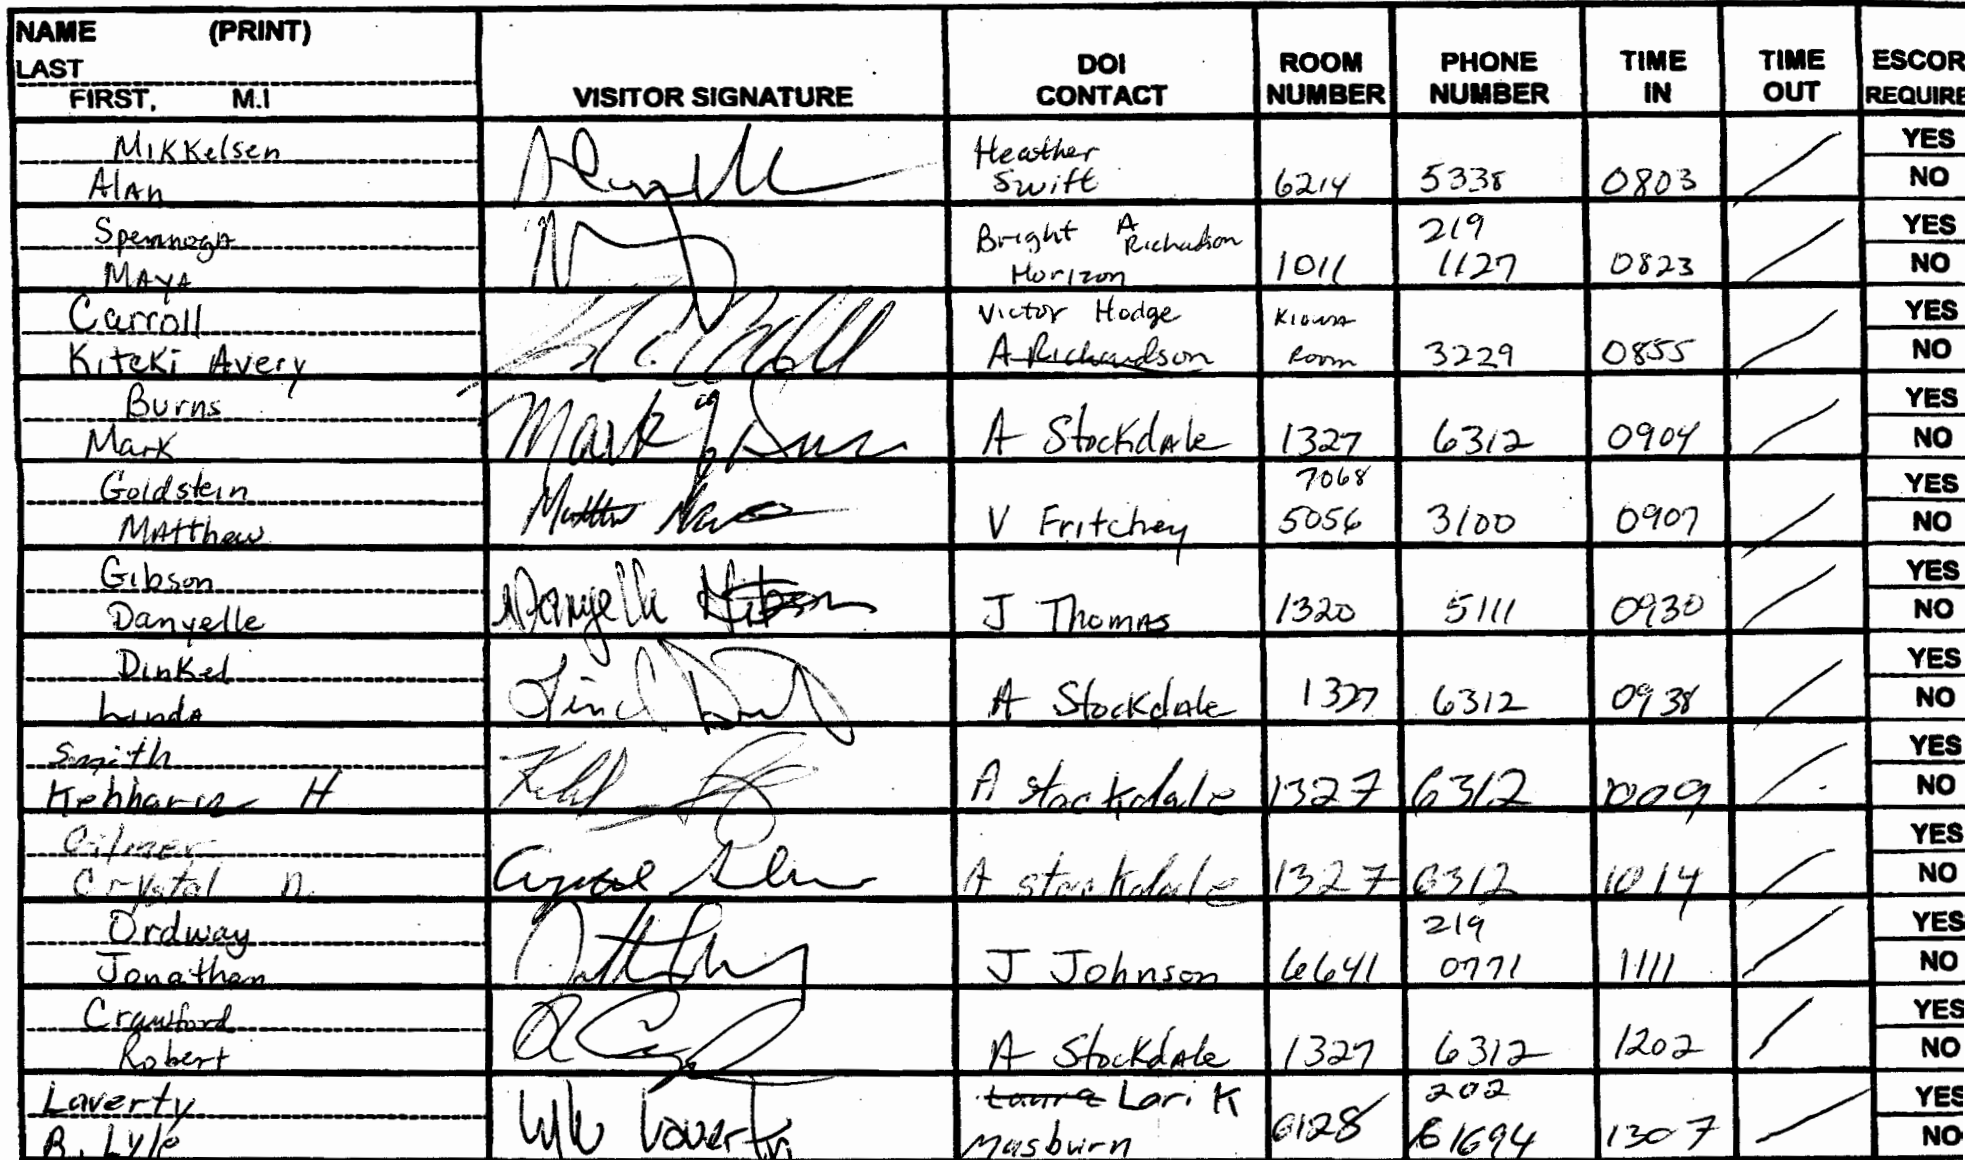 NAME (PRINT)
LAST
FIRST, M.I
VISITOR SIGNATURE
DOI CONTACT
ROOM NUMBER
PHONE NUMBER
TIME IN
TIME OUT
ESCOR
REQUIRE
Mikkelsen
Alan
Heather
Swift
6214 5338 0803
YES
NO
MAYA
Bright A Richardson
Horizon
1011
219
1127
0823
YES
NO
Carroll
Kiteki Avery
Victor Hodge
A Richardson
Kiowa
Room
3229 0855
YES
NO
Burns
Mark
A Stockdale 1327 6312 0904
YES
NO
Goldstein
Matthew
V Fritchey
7068
5056
3100 0907
YES
NO
Gibson
Danyelle
Danyelle Gibson
J Thomas 1320 5111 0930
YES
NO
Dinkel
Linda
A Stockdale 1327 6312 0938
YES
NO
Smith
H
A stockdale 1327 6312 1009
YES
NO
Gilmer
Crystal n.
A stockdale 1327 6312 1014
YES
NO
Ordway
Jonathan
J Johnson 6641
219
0771
1111
YES
NO
Crawford
Robert
A Stockdale 1327 6312 1202
YES
NO
Laverty
R. Lyle
Lyle Laverty
Laura Lori K
Masburn
6128
202
61694
1307
YES
NO